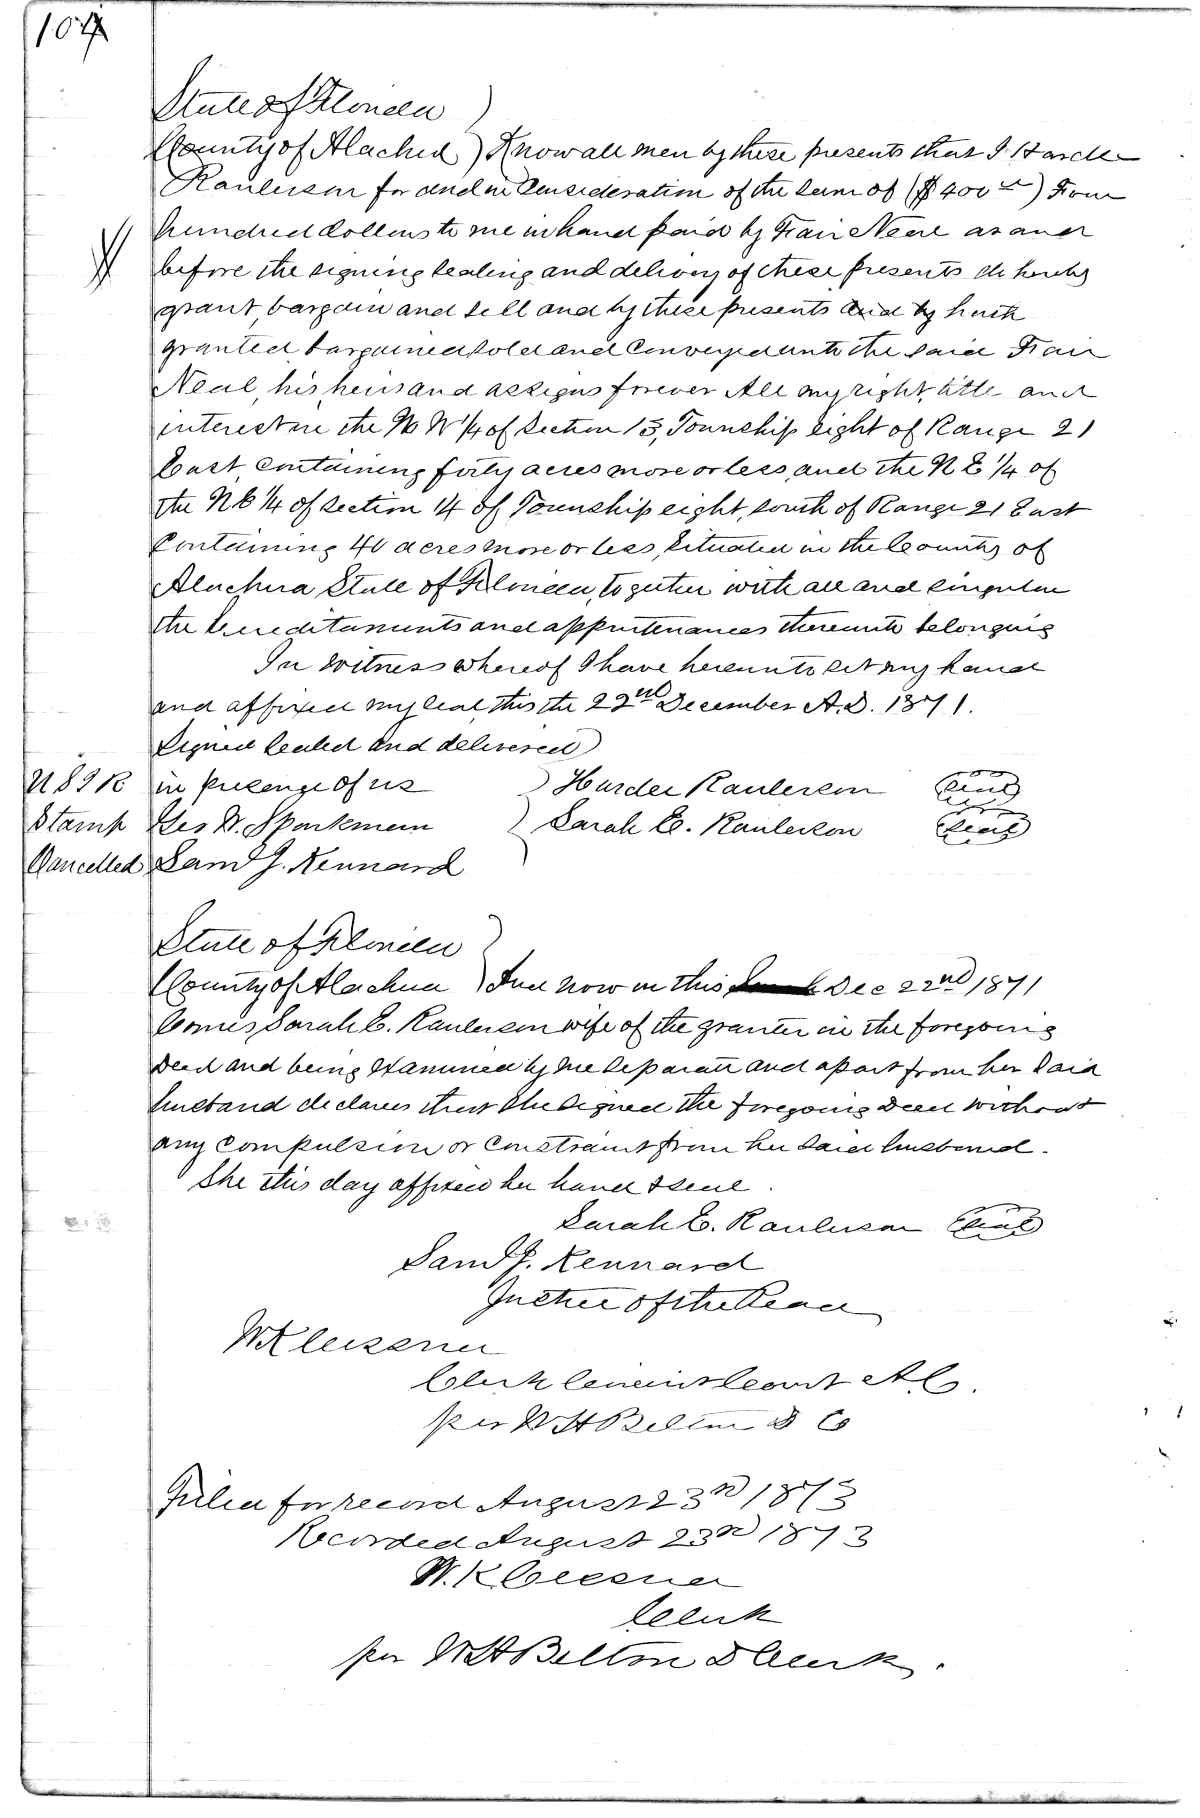 104
State of Florida )
County of Alachua ) Know all men by these presents that I Hardee
Raulerson for and in Consideration of the sum of ($400 00) Four
hundred dollars to me in hand paid by Frair Neal as and
before the signing sealing and delivery of these presents do hereby
grant, bargain and sell and by these presents and by hath
granted bargained sold and conveyed unto the said Frair
Neal, his heirs and assigns forever All my right, title and
interest in the N W 1/4 of Section 13, Township eight of Range 21
East, containing forty acres more or less, and the N E 1/4 of
the N E 1/4 of section 14 of Township eight, south of Range 21 East
containing 40 acres more or less, Situated in the County of
Alachua State of Florida, together with all and singular
the hereditaments and appurtenances thereunto belonging
In Witness whereof I have hereunto set my hand
and affixed my seal, this the 22nd December A.D. 1871.
Signed Sealed and delivered )
U S I R in presence of us ) Hardee Raulerson (Seal)
Stamp Geo W. Sparkman ) Sarah E. Raulerson (Seal)
Cancelled Saml J. Kennard )
State of Florida )
County of Alachua ) And now on this Dec 22nd 1871
Comes Sarah E. Raulerson wife of the granter in the foregoing
Deed and being examined by me separate and apart from her said
husband declares that she signed the foregoing Deed without
any compulsion or constraint from her said husband.
She this day affixed her hand & seal.
Sarah E. Raulerson (Seal)
Saml J. Kennard
Justice of the Peace
W K Cessna
Clerk Circuit Court A. Co.
per W H Belton D C
Filed for record August 23rd 1873
Recorded August 23rd 1873
W. K Cessna
Clerk
per W H Belton D Clerk.